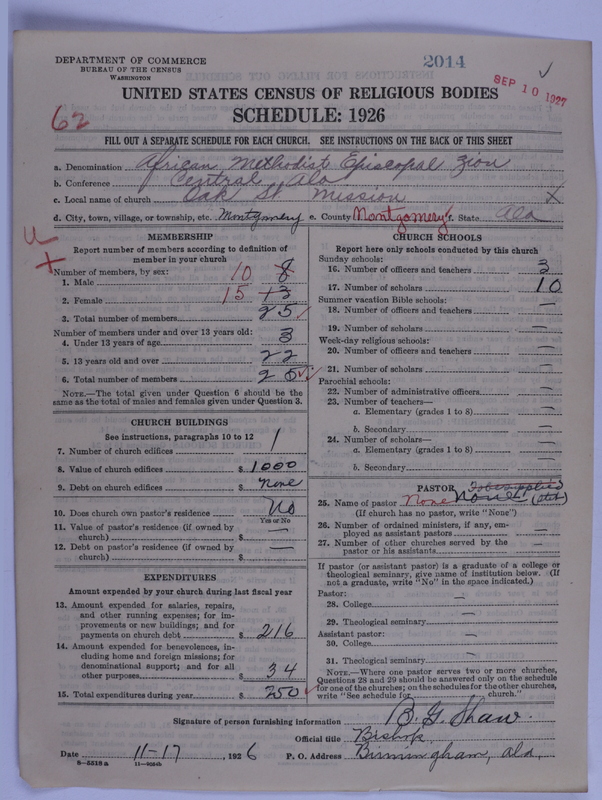 DEPARTMENT OF COMMERCE
BUREAU OF THE CENSUS
WASHINGTON
2014
SEP 10 1927
UNITED STATES CENSUS OF RELIGIOUS BODIES
62
SCHEDULE: 1926
FILL OUT A SEPARATE SCHEDULE FOR EACH CHURCH. SEE INSTRUCTIONS ON THE BACK OF THIS SHEET
a. Denomination African Methodist Episcopal Zion
b. Conference Central Ala
c. Local name of church Oak St Mission X
d. City, town, village, or township, etc. Montgomery e. County Montgomery f. State Ala
MEMBERSHIP
Report number of members according to definition of
member in your church
Number of members, by sex:
1. Male 10 8
2. Female 15 13
3. Total number of members 25
Number of members under and over 13 years old:
4. Under 13 years of age 3
5. 13 years old and over 22
6. Total number of members 25
NOTE.—The total given under Question 6 should be
same as the total of males and females given under Question 3.
CHURCH BUILDINGS
See instructions, paragraphs 10 to 12
7. Number of church edifices 1
8. Value of church edifices $ 1000
9. Debt on church edifices $ None
10. Does church own pastor's residence No
Yes or No
11. Value of pastor's residence (if owned by
church) $ —
12. Debt on pastor's residence (if owned by
church) $ —
EXPENDITURES
Amount expended by your church during last fiscal year
13. Amount expended for salaries, repairs,
and other running expenses; for im-
provements or new buildings; and for
payments on church debt $ 216
14. Amount expended for benevolences, in-
cluding home and foreign missions; for
denominational support; and for all
other purposes $ 34
15. Total expenditures during year $ 250
CHURCH SCHOOLS
Report here only schools conducted by this church
Sunday schools:
16. Number of officers and teachers 3
17. Number of scholars 10
Summer vacation Bible schools:
18. Number of officers and teachers —
19. Number of scholars —
Week-day religious schools:
20. Number of officers and teachers —
21. Number of scholars —
Parochial schools:
22. Number of administrative officers —
23. Number of teachers—
a. Elementary (grades 1 to 8) —
b. Secondary —
24. Number of scholars—
a. Elementary (grades 1 to 8) —
b. Secondary —
PASTOR
25. Name of pastor None None
(If church has no pastor, write "None")
26. Number of ordained ministers, if any, em-
ployed as assistant pastors —
27. Number of other churches served by the
pastor or his assistants —
If pastor (or assistant pastor) is a graduate of a college or
theological seminary, give name of institution below. (If
not a graduate, write "No" in the space indicated.)
Pastor:
28. College —
29. Theological seminary —
Assistant pastor:
30. College —
31. Theological seminary —
NOTE.—Where one pastor serves two or more churches,
Questions 28 and 29 should be answered only on the schedule
for one of the churches; on the schedules for the other churches,
write "See schedule for church."
Signature of person furnishing information B. G. Shaw
Official title Bishop
Date 11-17, 1926 P. O. Address Birmingham, Ala,
8-5518a